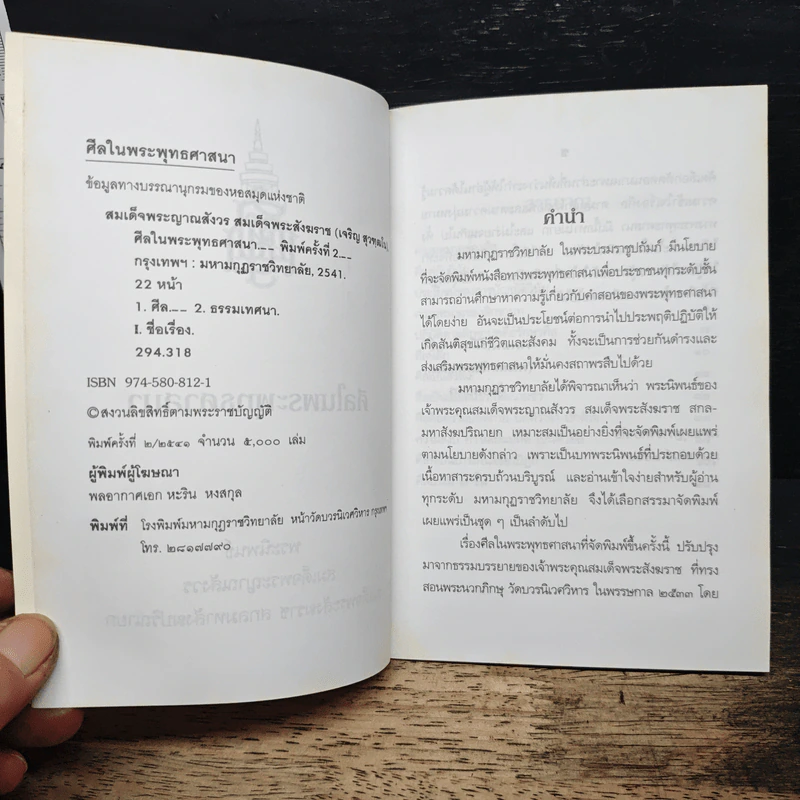 ศีลในพระพุทธศาสนา
ข้อมูลทางบรรณานุกรมของหอสมุดแห่งชาติ
สมเด็จพระญาณสังวร สมเด็จพระสังฆราช (เจริญ สุวฑฺฒโน)
ศีลในพระพุทธศาสนา.-- พิมพ์ครั้งที่ 2.--
กรุงเทพฯ : มหามกุฏราชวิทยาลัย, 2541.
22 หน้า
1. ศีล.-- 2. ธรรมเทศนา.
I. ชื่อเรื่อง.
294.318
ISBN 974-580-812-1
©สงวนลิขสิทธิ์ตามพระราชบัญญัติ
พิมพ์ครั้งที่ ๒/๒๕๔๑ จำนวน ๕,๐๐๐ เล่ม
ผู้พิมพ์ผู้โฆษณา
พลอากาศเอก หะริน หงสกุล
พิมพ์ที่ โรงพิมพ์มหามกุฏราชวิทยาลัย หน้าวัดบวรนิเวศวิหาร กรุงเทพฯ
โทร. ๒๘๑๗๗๙๐
คำนำ
มหามกุฏราชวิทยาลัย ในพระบรมราชูปถัมภ์ มีนโยบาย
ที่จะจัดพิมพ์หนังสือทางพระพุทธศาสนาเพื่อประชาชนทุกระดับชั้น
สามารถอ่านศึกษาหาความรู้เกี่ยวกับคำสอนของพระพุทธศาสนา
ได้โดยง่าย อันจะเป็นประโยชน์ต่อการนำไปประพฤติปฏิบัติให้
เกิดสันติสุขแก่ชีวิตและสังคม ทั้งจะเป็นการช่วยกันดำรงและ
ส่งเสริมพระพุทธศาสนาให้มั่นคงสถาพรสืบไปด้วย
มหามกุฏราชวิทยาลัยได้พิจารณาเห็นว่า พระนิพนธ์ของ
เจ้าพระคุณสมเด็จพระญาณสังวร สมเด็จพระสังฆราช สกล-
มหาสังฆปริณายก เหมาะสมเป็นอย่างยิ่งที่จะจัดพิมพ์เผยแพร่
ตามนโยบายดังกล่าว เพราะเป็นบทพระนิพนธ์ที่ประกอบด้วย
เนื้อหาสาระครบถ้วนบริบูรณ์ และอ่านเข้าใจง่ายสำหรับผู้อ่าน
ทุกระดับ มหามกุฏราชวิทยาลัย จึงได้เลือกสรรมาจัดพิมพ์
เผยแพร่เป็นชุด ๆ เป็นลำดับไป
เรื่องศีลในพระพุทธศาสนาที่จัดพิมพ์ขึ้นครั้งนี้ ปรับปรุง
มาจากธรรมบรรยายของเจ้าพระคุณสมเด็จพระสังฆราช ที่ทรง
สอนพระนวกภิกษุ วัดบวรนิเวศวิหาร ในพรรษกาล ๒๕๓๓ โดย